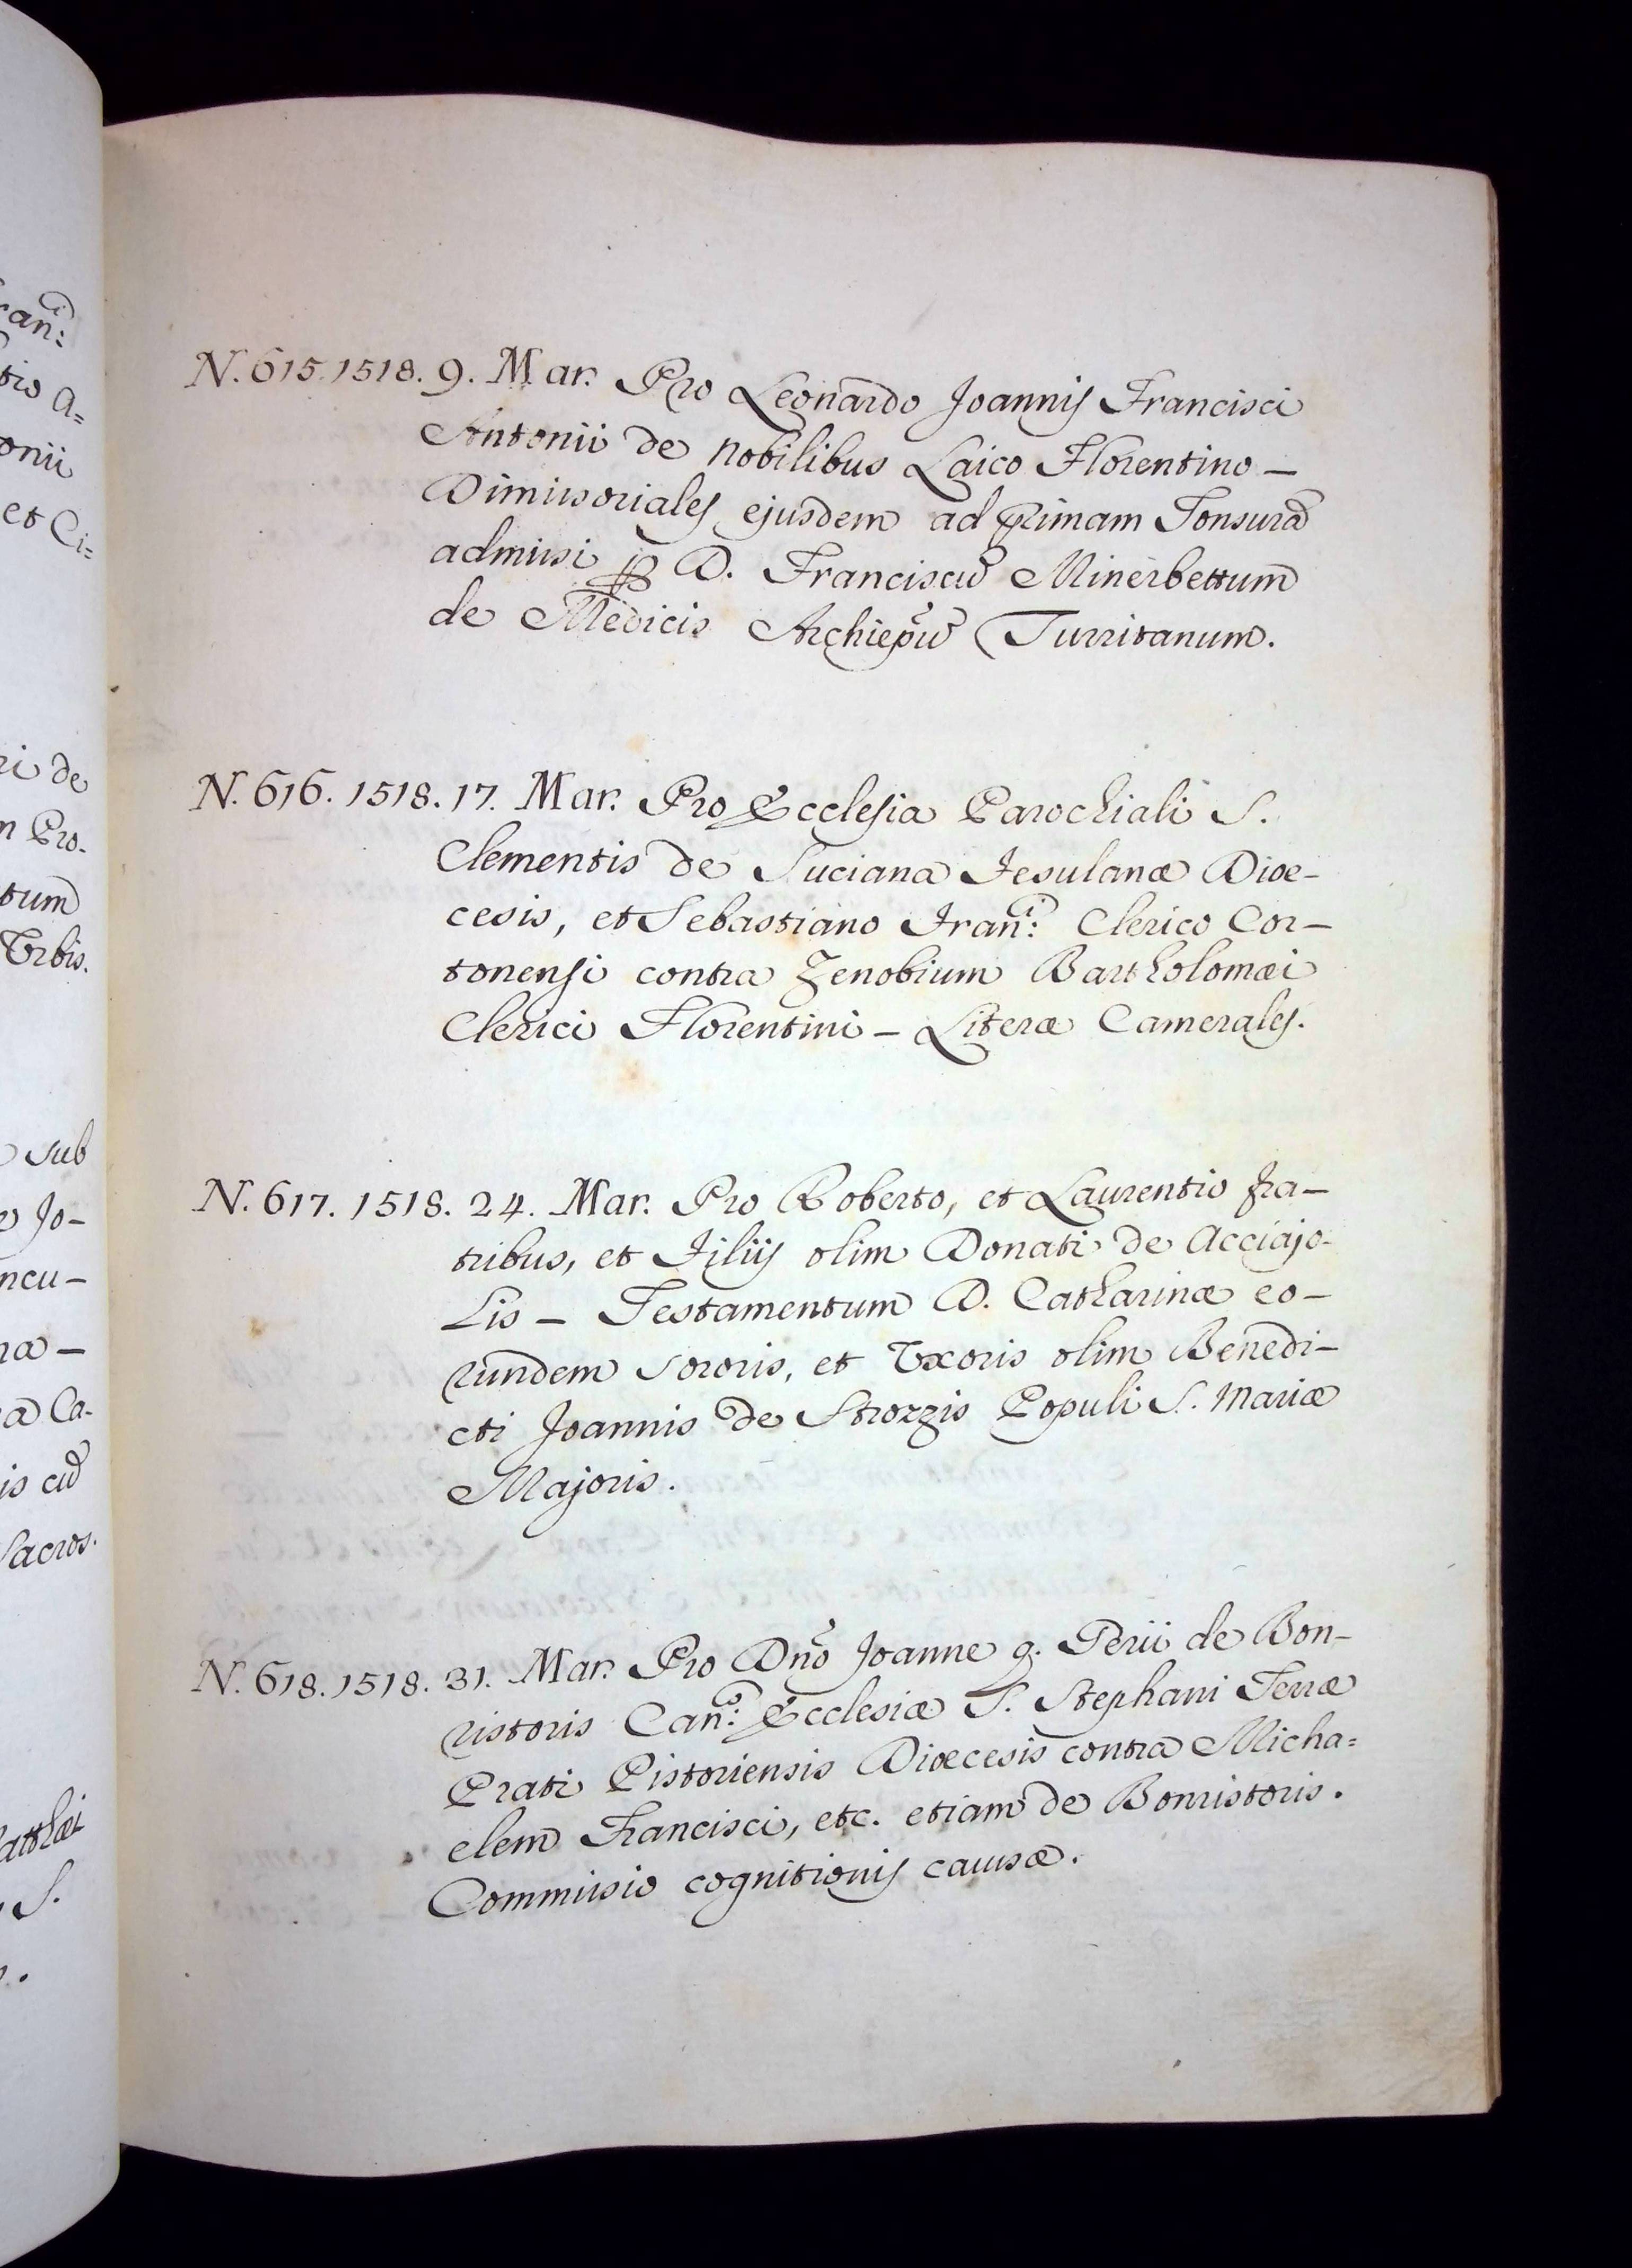 N. 615. 1518. 9. Mar. Pro Leonardo Joannis Francisci
Antonii de Nobilibus Laico Florentino –
Dimissoriales ejusdem ad primam Tonsurã
admissi ꝑ D. Franciscũ Minerbettum
de Medicis Archiepũ Turritanum.
N. 616. 1518. 17. Mar. Pro Ecclesia Parochiali S.
Clementis de Luciana Fesulanæ Dioe-
cesis, et Sebastiano Franⁱ: Clerico Cor-
tonensi contra Zenobium Bartholomæi
Clerici Florentini – Literæ Camerales.
N. 617. 1518. 24. Mar. Pro Roberto, et Laurentio fra-
tribus, et Filiis olim Donati de Acciajo-
lis – Testamentum D. Catharinæ eo-
rundem Sororis, et Uxoris olim Benedi-
cti Joannis de Strozzis Populi S. Mariæ
Majoris.
N. 618. 1518. 31. Mar. Pro Dño Joanne q. Perii de Bon-
ristoris Canᶜᵒ: Ecclesiæ S. Stephani Terræ
Prati Pistoriensis Dioecesis contra Micha=
elem Francisci, etc. etiam de Bonristoris.
Commissio cognitionis causæ.
canⁱ:
tio A=
onii
et Ci=
ri de
m Pro-
tum
Urbis.
sub
o Jo-
ncu-
na –
a Ca-
is cũ
Sacros.
atthæi
S.